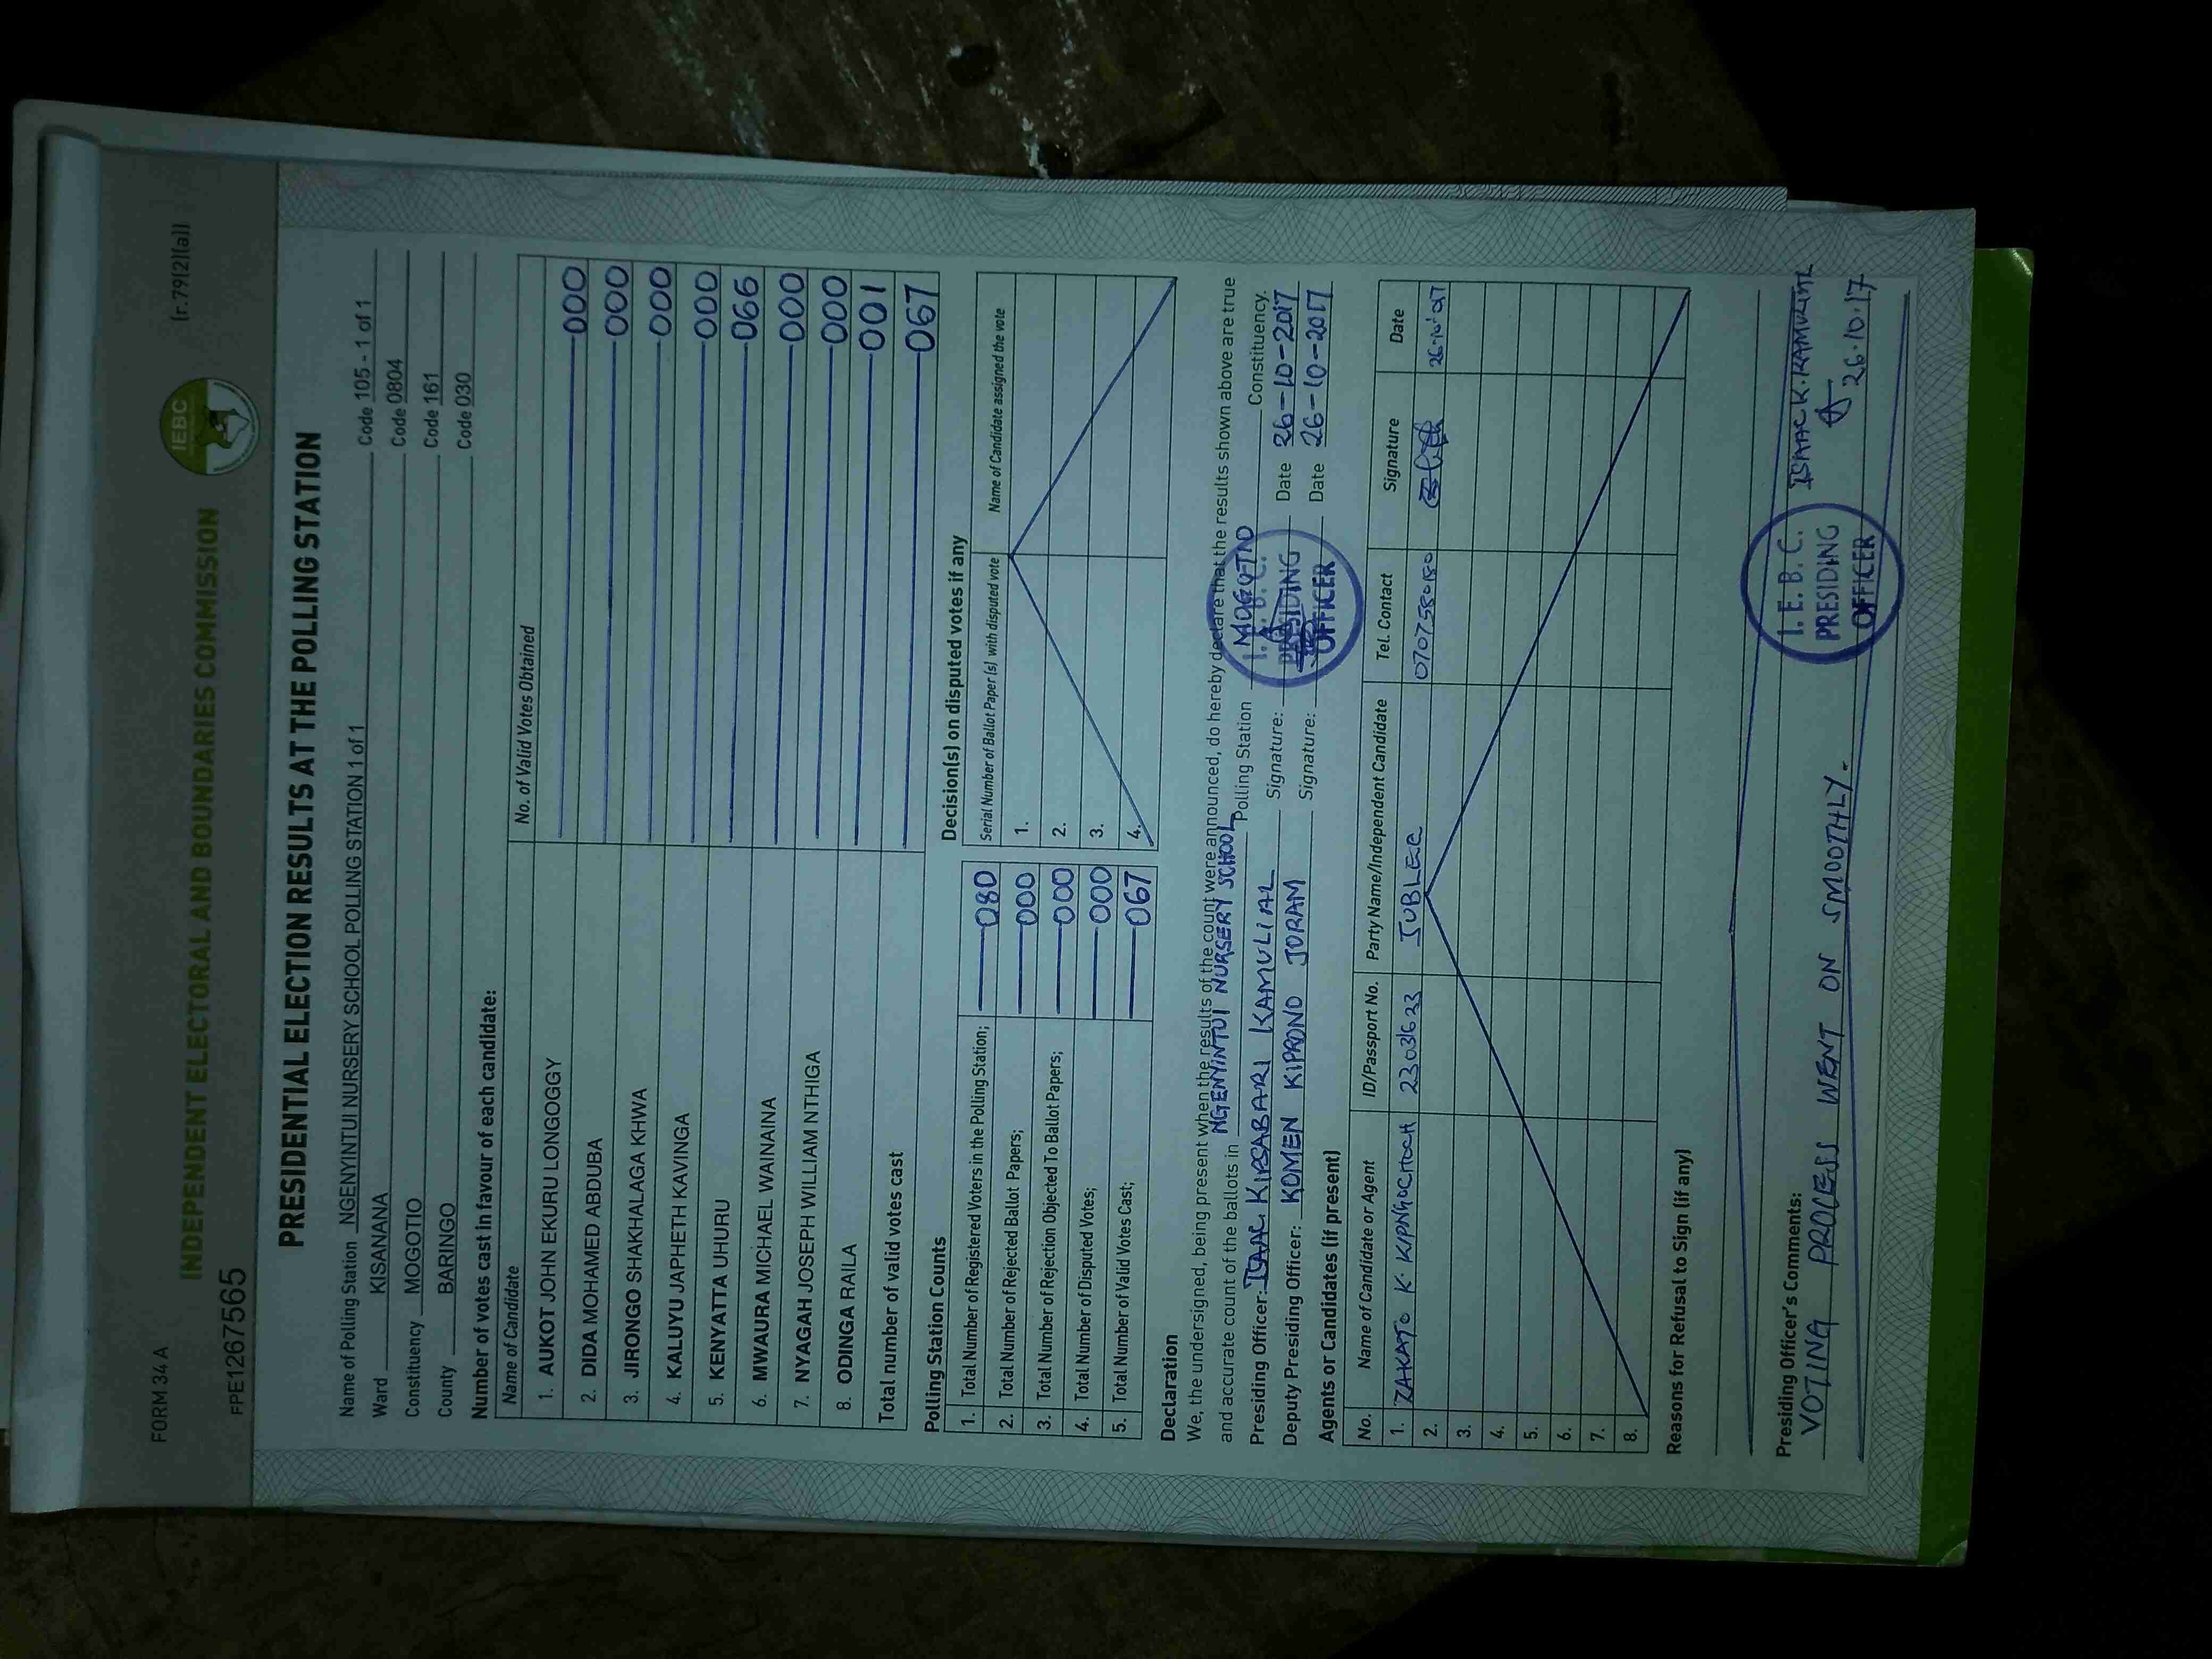 FORM 34 A
(r.79(2)(a))
IEBC
INDEPENDENT ELECTORAL AND BOUNDARIES COMMISSION
FPE1267565
PRESIDENTIAL ELECTION RESULTS AT THE POLLING STATION
Name of Polling Station NGENYINTUI NURSERY SCHOOL POLLING STATION 1 of 1 Code 105 - 1 of 1
Ward KISANANA Code 0804
Constituency MOGOTIO Code 161
County BARINGO Code 030
Number of votes cast in favour of each candidate:
Name of Candidate No. of Valid Votes Obtained
1. AUKOT JOHN EKURU LONGOGGY 000
2. DIDA MOHAMED ABDUBA 000
3. JIRONGO SHAKHALAGA KHWA 000
4. KALUYU JAPHETH KAVINGA 000
5. KENYATTA UHURU 066
6. MWAURA MICHAEL WAINAINA 000
7. NYAGAH JOSEPH WILLIAM NTHIGA 000
8. ODINGA RAILA 001
Total number of valid votes cast 067
Polling Station Counts
1. Total Number of Registered Voters in the Polling Station; 080
2. Total Number of Rejected Ballot Papers; 000
3. Total Number of Rejection Objected To Ballot Papers; 000
4. Total Number of Disputed Votes; 000
5. Total Number of Valid Votes Cast; 067
Decision(s) on disputed votes if any
Serial Number of Ballot Paper (s) with disputed vote Name of Candidate assigned the vote
1.
2.
3.
4.
Declaration
We, the undersigned, being present when the results of the count were announced, do hereby declare that the results shown above are true
and accurate count of the ballots in NGENYINTUI NURSERY SCHOOL Polling Station MOGOTIO Constituency.
Presiding Officer: ISAAC KIPSABARI KAMULIAL Signature: Date 26-10-2017
Deputy Presiding Officer: KOMEN KIPRONO JORAM Signature: Date 26-10-2017
I.E.B.C.
PRESIDING
OFFICER
Agents or Candidates (if present)
No. Name of Candidate or Agent ID/Passport No. Party Name/Independent Candidate Tel. Contact Signature Date
1. ZAKAYO K. 23031633 JUBLEE 0707580180
2.
3.
4.
5.
6.
7.
8.
Reasons for Refusal to Sign (if any)
Presiding Officer's Comments:
VOTING PROCESS WENT ON SMOOTHLY.
I.E.B.C.
PRESIDING
OFFICER
ISAAC K. KAMULIAL
26.10.17